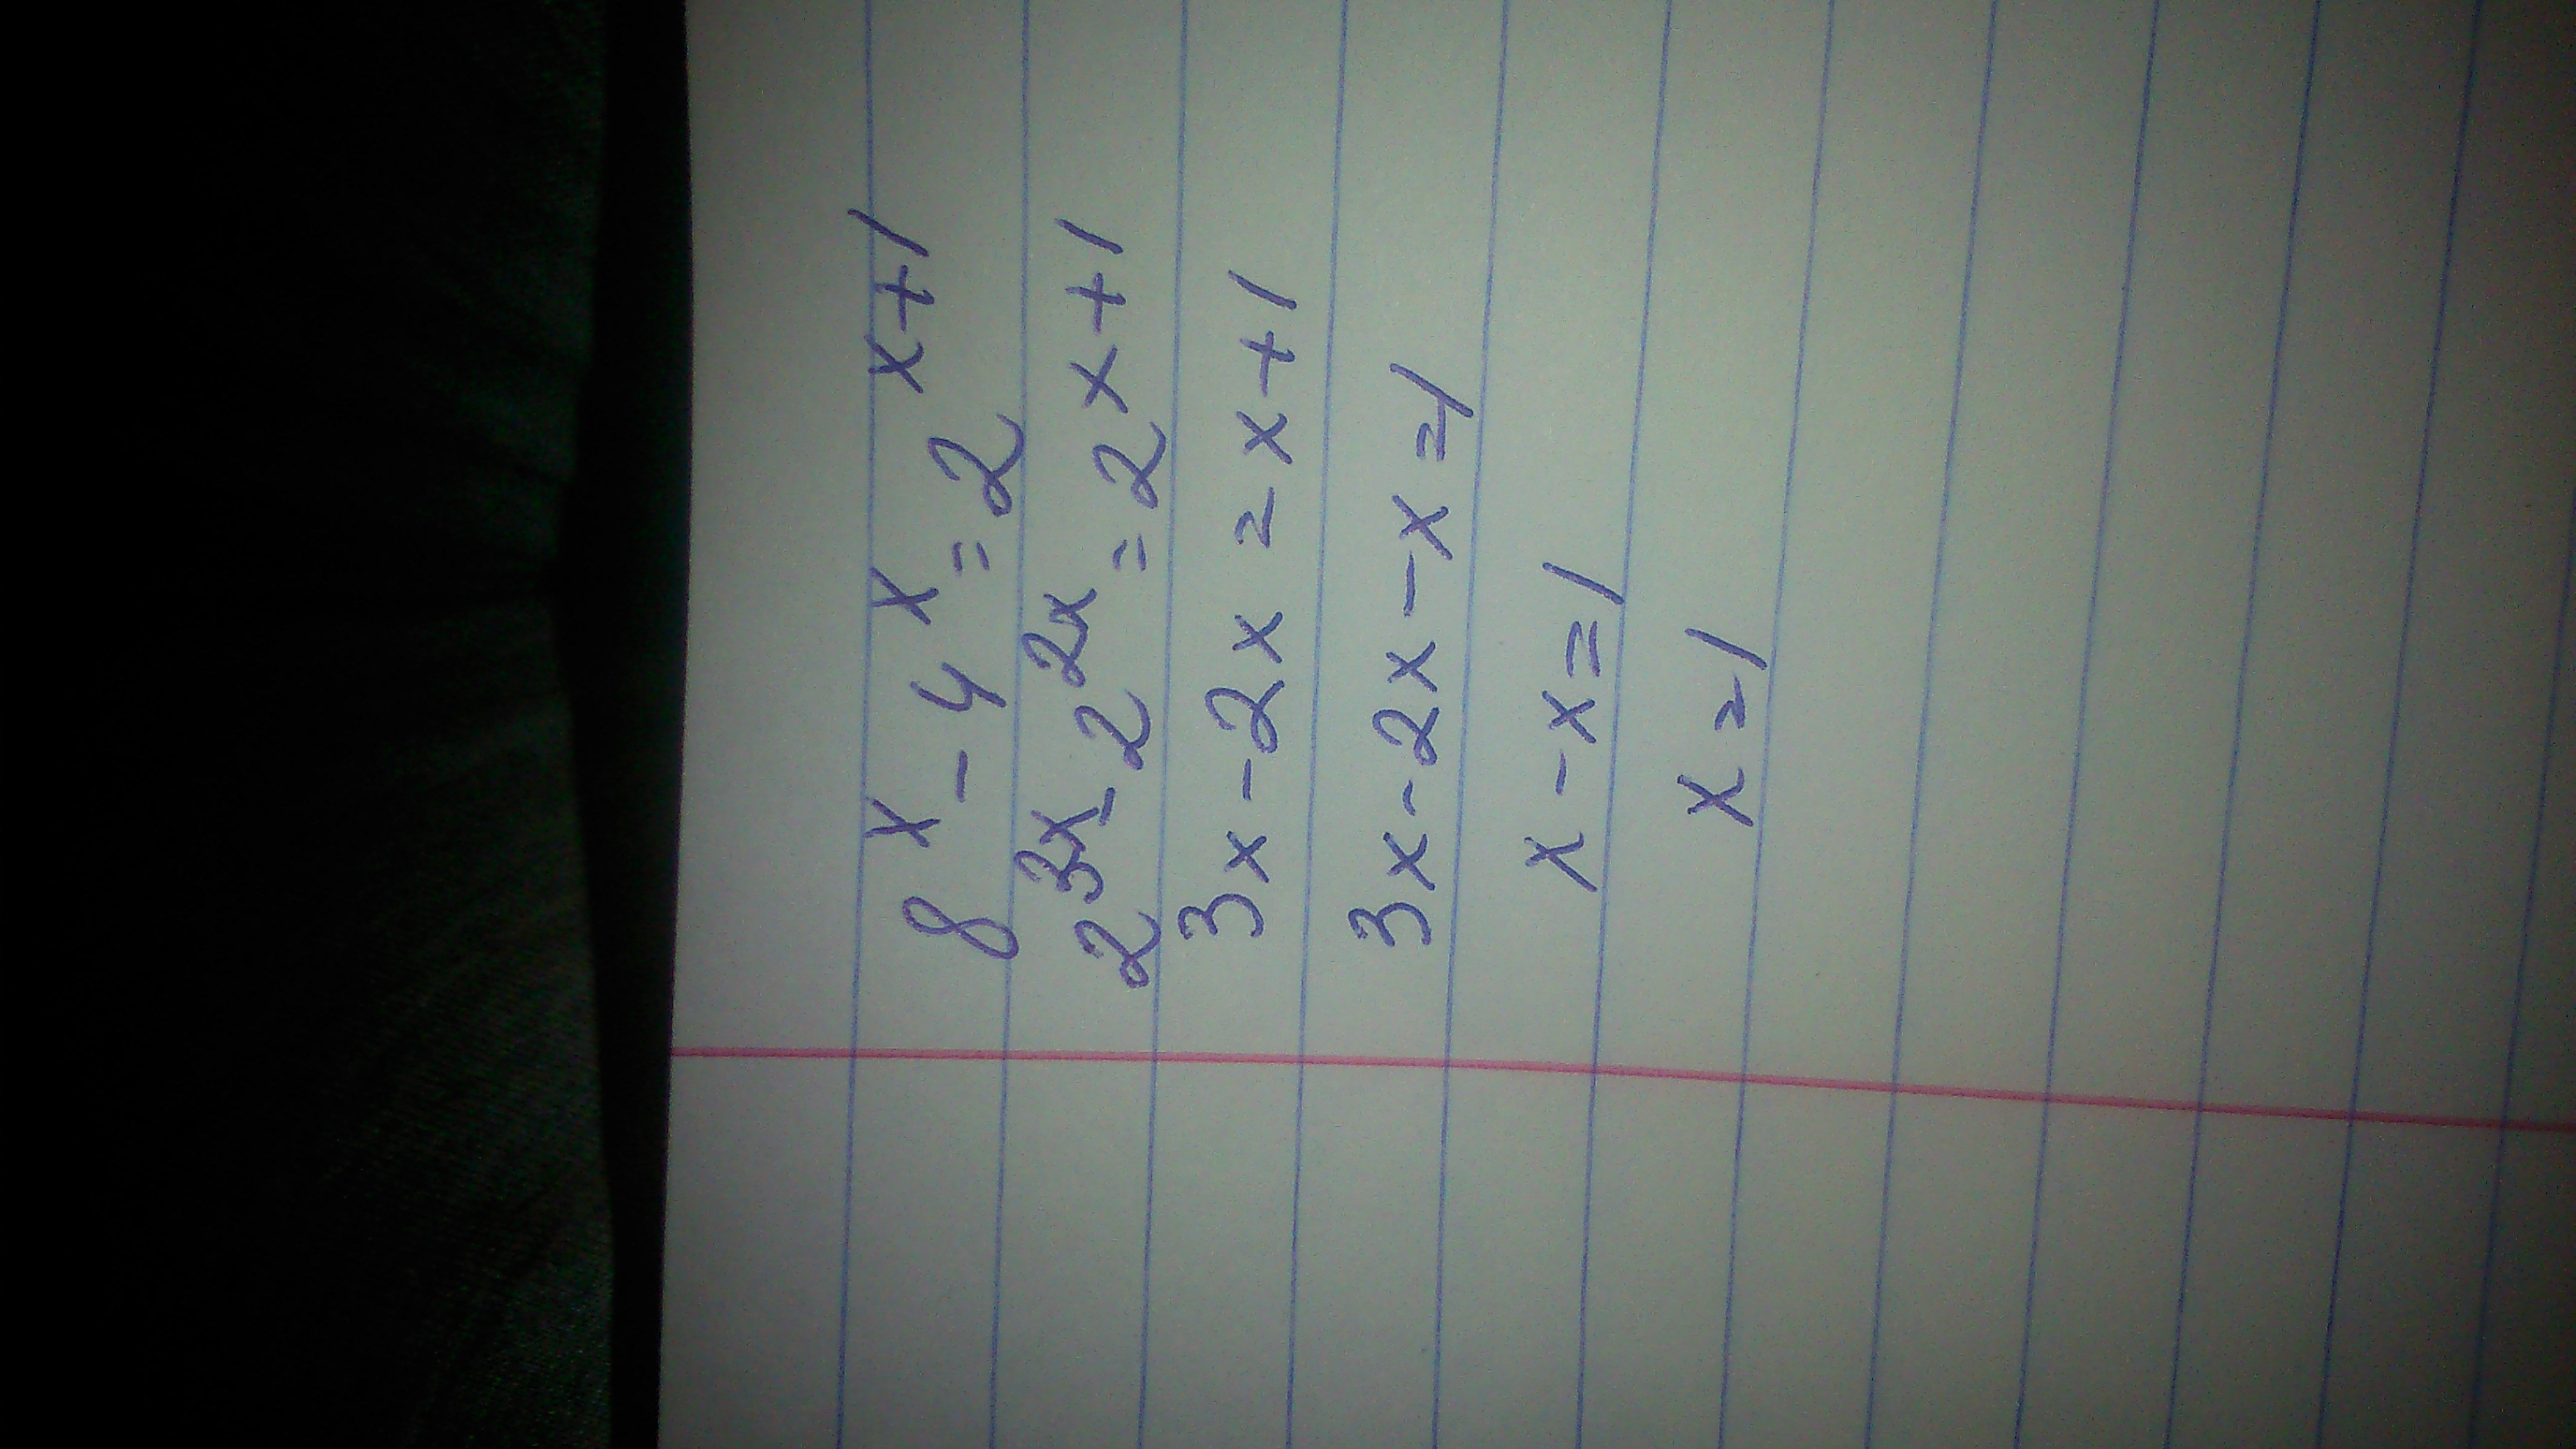 8^x - 4^x = 2^x+1
2^3x - 2^2x = 2^x+1
3x - 2x = x + 1
3x - 2x - x = 1
x - x = 1
x = 1